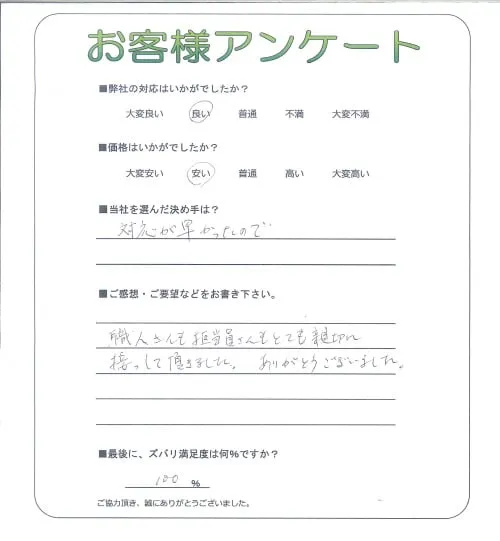 お客様アンケート
■弊社の対応はいかがでしたか？
大変良い 良い 普通 不満 大変不満
■価格はいかがでしたか？
大変安い 安い 普通 高い 大変高い
■当社を選んだ決め手は？
対応が早かったので
■ご感想・ご要望などをお書き下さい。
職人さんも担当員さんもとても親切に
接っして頂きました。 ありがとうございました。
■最後に、ズバリ満足度は何％ですか？
100 ％
ご協力頂き、誠にありがとうございました。